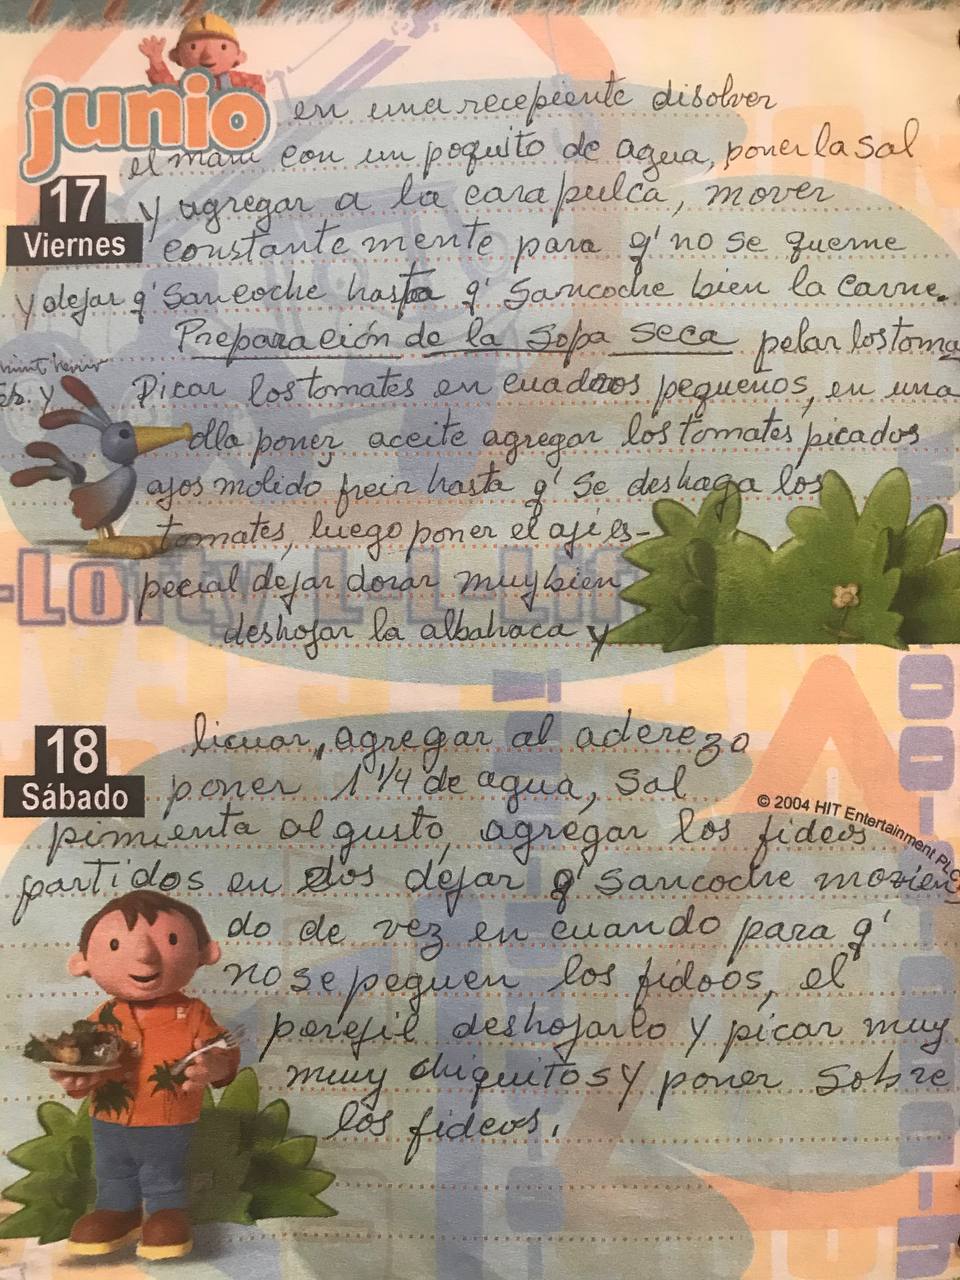 junio
en una recepiente disolver
el mani con un poquito de agua, poner la sal
17
Viernes
y agregar a la carapulca, mover
constante mente para q' no se queme
y dejar q' sancoche hasta q' sancoche bien la carne.
Preparación de la sopa seca pelar los toma
y
Picar los tomates en cuadros pequeños, en una
olla poner aceite agregar los tomates picados
ajos molido freir hasta q' se deshaga los
tomates, luego poner el aji es-
pecial dejar dorar muy bien
deshojar la albahaca y
-Lofty
18
Sábado
licuar, agregar al aderezo
poner 1 1/4 de agua, sal
© 2004 HIT Entertainment PLC
pimienta al gusto, agregar los fideos
partidos en dos dejar q' sancoche movien
do de vez en cuando para q'
no se peguen los fidoos, el
perejil deshojarlo y picar muy
muy chiquitos y poner sobre
los fideos.